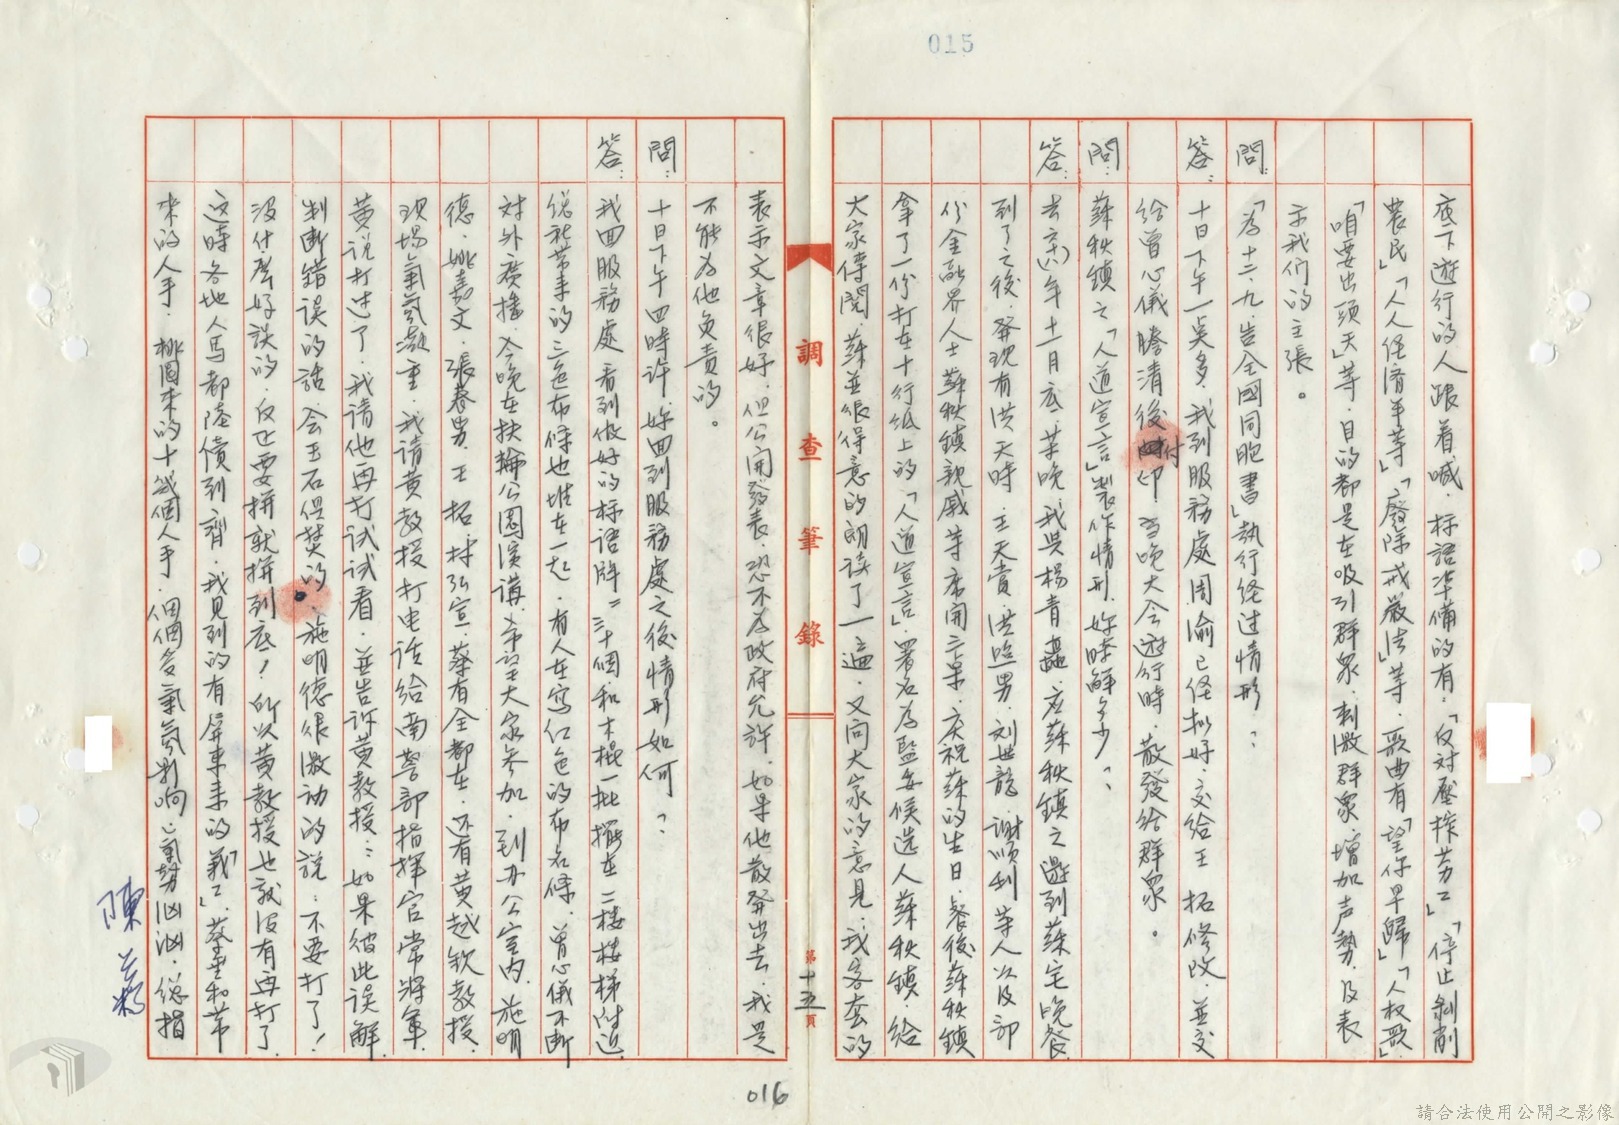 015
底下遊行的人跟着喊．标語准備的有．「反对壓榨劳工」「停止剝削
農民」「人人經濟平等」「廢除戒嚴法」等．歌曲有「望你早歸」「人权歌」
「咱要出頭天」等．目的都是在吸引群眾．刺激群眾．增加声勢．及表
示我们的主張。
問：「为十二．九．告全國同胞書」执行经过情形？：
答：十日下午一点多．我到服務處周渝已经拟好．交给王 拓修改．並交
给曾心儀謄清後付印．当晚大会遊行時．散發给群眾。
問：蘇秋鎮之「人道宣言」製作情形．妳瞭解多少？：
答：去(六八)年十一月底．某晚．我與楊青矗．应蘇秋鎮之邀到蘇宅晚餐．
到了之後．發現有洪天時．王天賞．洪照男．刘世龍．謝順利等人以及部
份金融界人士蘇秋鎮親戚等席開三桌．庆祝蘇的生日．餐後蘇秋鎮
拿了一份打在十行纸上的「人道宣言」．署名为監委候选人蘇秋鎮．给
大家传閱．蘇並很得意的朗读了一遍．又问大家的意見．我客套的
調查筆錄
第十五頁
表示文章很好．但公開發表．恐不为政府允許．如果他散發出去．我是
不能为他负责的。
問：十日下午四時许．妳回到服務處之後情形如何？：
答：我回服務處．看到做好的标语牌二三十個和木棍一批擺在二楼楼梯附近．
總社带来的三色布條也堆在一起．有人在寫红色的布名條．曾心儀不断
対外廣播．今晚在扶輪公園演講．希望大家参加．到办公室内．施明
德．姚嘉文．張春男．王 拓．陳弘宣．蔡有全都在．还有黄越钦教授．
现場氣氛凝重．我请黄教授打电话给南警部指揮官常將軍．
黄说打过了．我请他再打试试看．並告诉黄教授：如果彼此误解．
判断错误的話．会玉石俱焚的．施明德很激动的说：不要打了！
没什麼好谈的．反正要拼就拼到底！所以黄教授也就没有再打了．
這時各地人馬都陸續到齊．我見到的有屏東来的「義工」．蔡
来的人手．桃園来的十幾個人手．個個受氣氛影响．氣勢汹汹．總指
016
請合法使用公開之影像